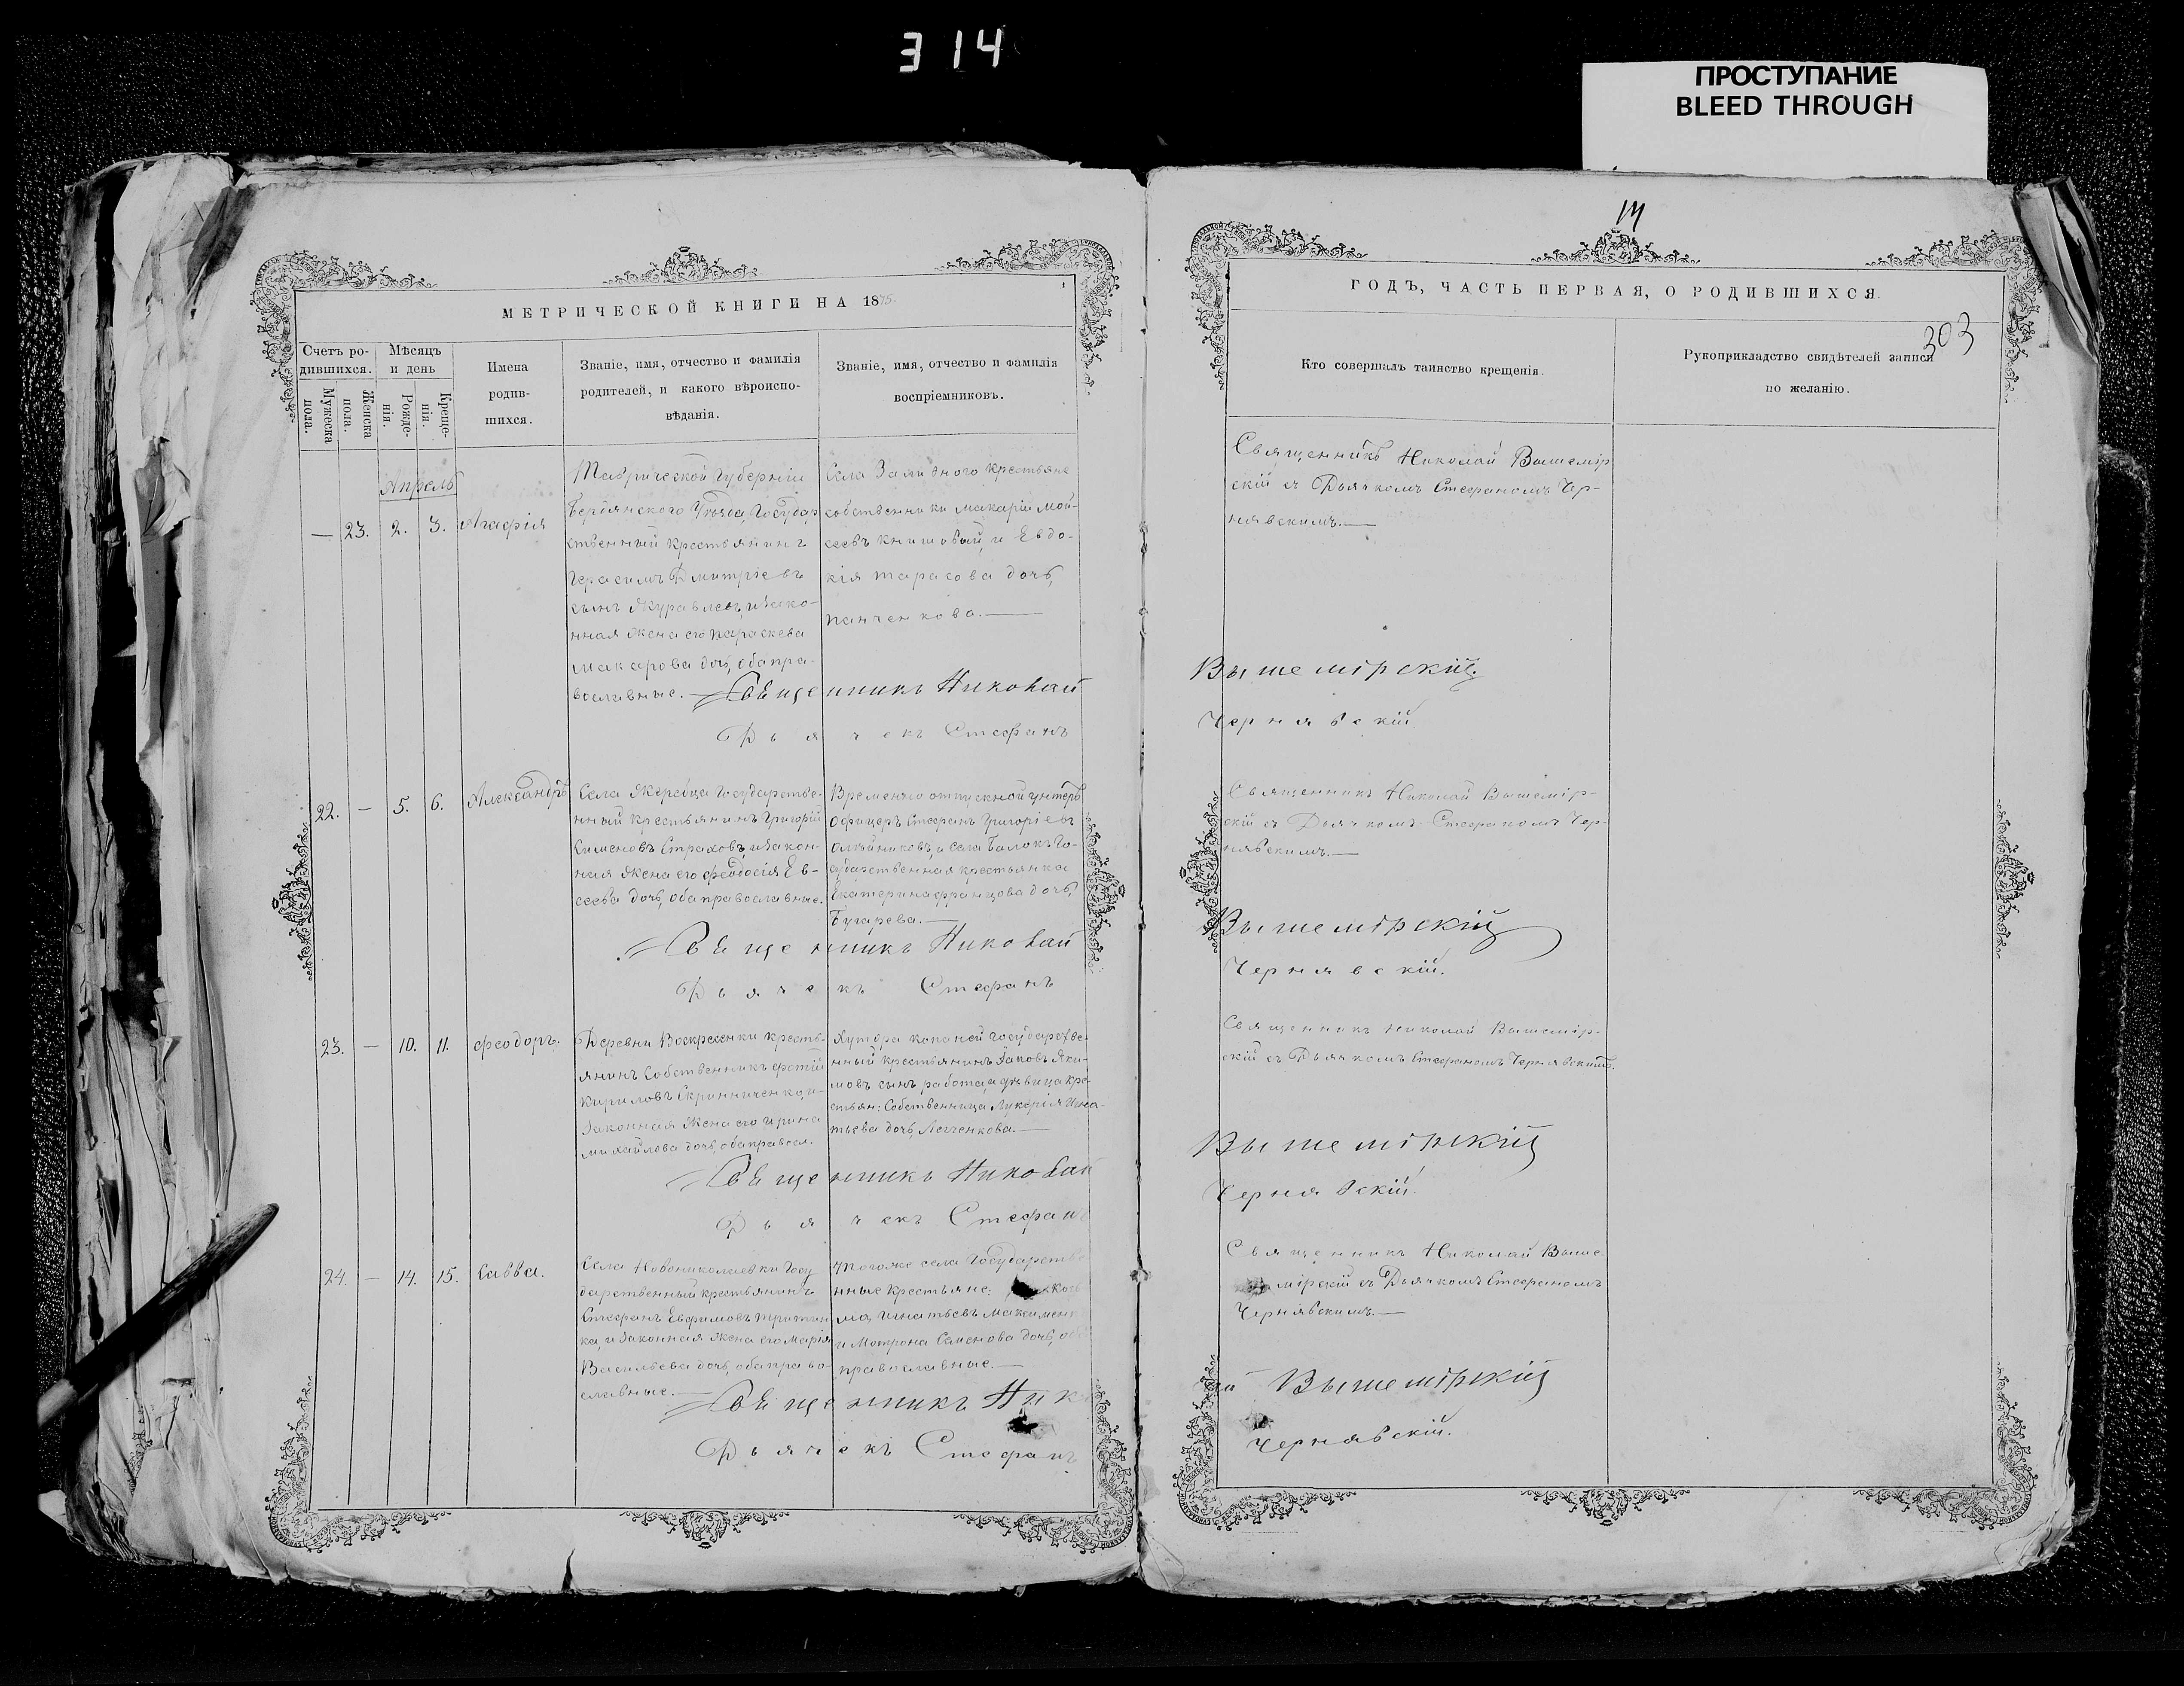 314
ПРОСТУПАНИЕ
BLEED THROUGH
МЕТРИЧЕСКОЙ КНИГИ НА 1875
Счетъ ро-
дившихся.
Мужеска
пола.
Женска
пола.
Мѣсяцъ
и день
Рожде-
нія.
Креще-
нія.
Имена
родив-
шихся.
Званіе, имя, отчество и фамилія
родителей, и какого вѣроиспо-
вѣданія.
Званіе, имя, отчество и фамилія
воспріемниковъ.
Апрель
— 23. 2. 3. Агафія
Таврической Губерніи
Бердянского Уѣзда, Государ
ственный крестьянинъ
Герасимъ Дмитріевъ
сынъ Журавлевъ, и зако-
нная жена его Параскева
Макарова дочь, оба пра-
вославные.—
Села крестьяне
собственники Макарій Мой-
сеевъ Книшовый, и Евдо-
кія Тарасова дочь,
Панченкова.—
Священникъ Николай
Дьячекъ Стефанъ
22. — 5. 6. Александръ
Села Жеребца Государстве-
нный крестьянинъ Григорій
Сименовъ Страховъ, и закон-
ная жена его Феодосія Ев-
сеева дочь, оба православные.
Временно отпускной унтеръ
Офицеръ Стефанъ Григоріевъ
Олѣйниковъ, и села Балокъ Го-
сударственная крестьянка
Екатерина Францова дочь,
Бугарева.—
Священникъ Николай
Дьячекъ Стефанъ
23. — 10. 11. Феодоръ.
Деревни Воскресенки кресть-
янинъ Собственникъ Фотій
Кириловъ Скринниченко, и
законная жена его Ирина
Михайлова дочь, оба правосл.
Хутора Копаней Государстве-
нный крестьянинъ Іаковъ Яки-
мовъ сынъ работа, и дѣвица кре-
стьян: Собственница Лукерія Игна-
тьева дочь,
Священникъ Николай
Дьячекъ Стефанъ
24. — 14. 15. Савва.
Села Новониколаевки Госу
дарственный крестьянинъ
Стефанъ Евфимовъ
ка, и законная жена его Марія
Васильева дочь, оба право-
славные.—
того же села Государстве
нные крестьяне:
ма Игнатьевъ Максименк
и Мотрона Семенова дочь, оба
православные.—
Священникъ Ник
Дьячекъ Стефанъ
14
ГОДЪ, ЧАСТЬ ПЕРВАЯ, О РОДИВШИХСЯ.
303
Кто совершалъ таинство крещенія.
Рукоприкладство свидѣтелей записи
по желанію.
Священникъ Николай Вышемір
скій съ Дьячкомъ Стефаномъ Чер-
нявскимъ.—
Вышемірскій.
Чернявскій
Священникъ Николай Вышемір-
скій съ Дьячкомъ Стефаномъ Чер-
нявскимъ.—
Вышемірскій
Чернявскій.
Священникъ Николай Вышемір-
скій съ Дьячкомъ Стефаномъ Чернявскимъ.
Вышемірскій
Чернявскій.
Священникъ Николай Выше
мірскій съ Дьячкомъ Стефаномъ
Чернявскимъ.—
Вышемірскій
Чернявскій.